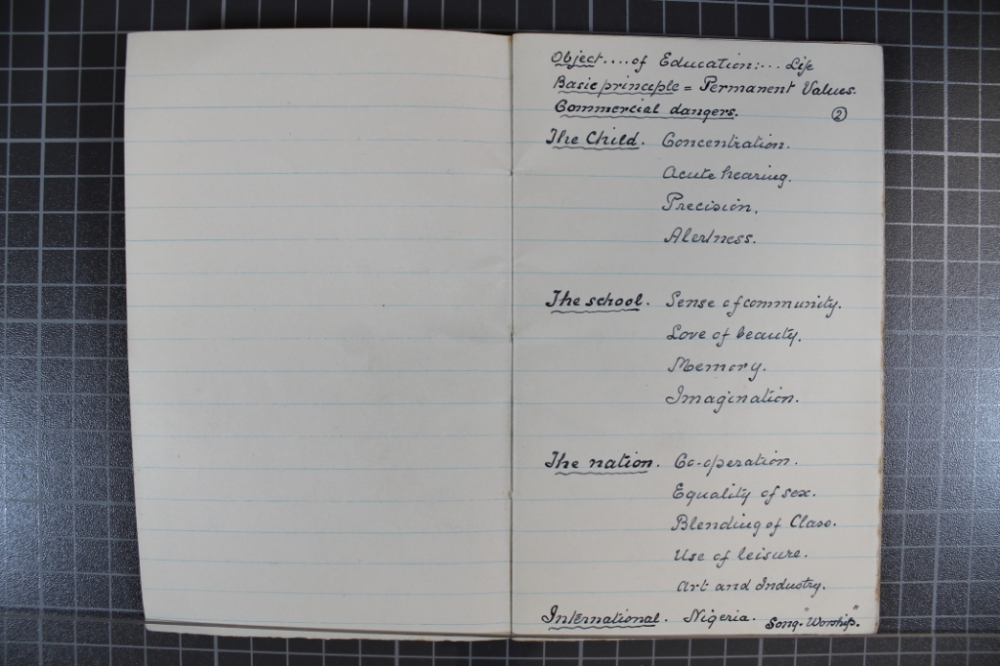 Object....of Education:... Life
Basic principle = Permanent Values.
Commercial dangers. ②
The Child. Concentration.
Acute hearing.
Precision.
Alertness.
The school. Sense of community.
Love of beauty.
Memory.
Imagination.
The nation. Co-operation.
Equality of sex.
Blending of Class.
Use of leisure.
Art and Industry.
International. Nigeria. Song. "Worship."